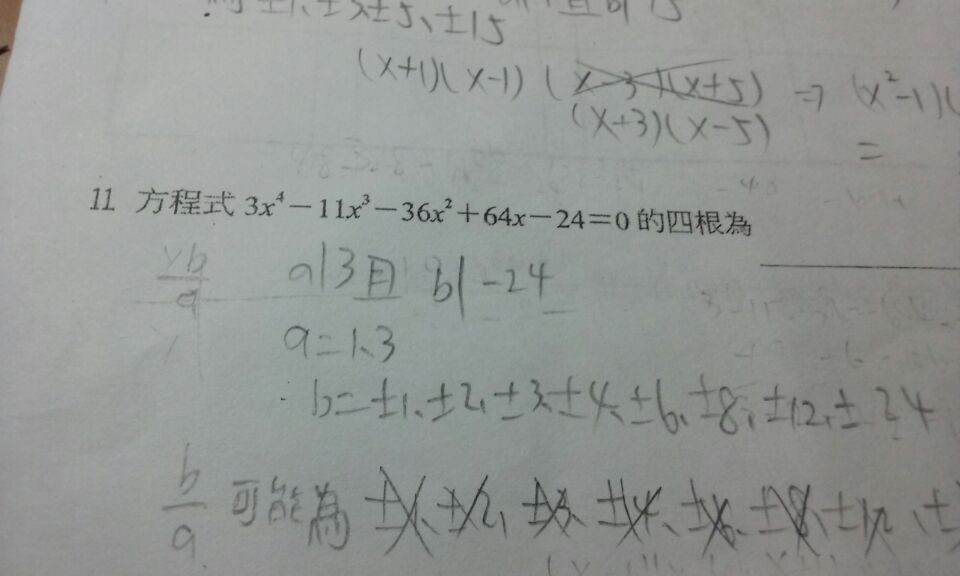 ±1、±3、±5、±15
(x+1)(x-1)(x-3)(x+5) ⇒ (x²-1)(
(x+3)(x-5)
=
11 方程式 3x⁴-11x³-36x²+64x-24=0 的四根為
a|3且 b|-24
a=1、3
b=±1、±2、±3、±4、±6、±8、±12、±24
b/a 可能為 ±1、±2、±3、±4、±6、±8、±12、±